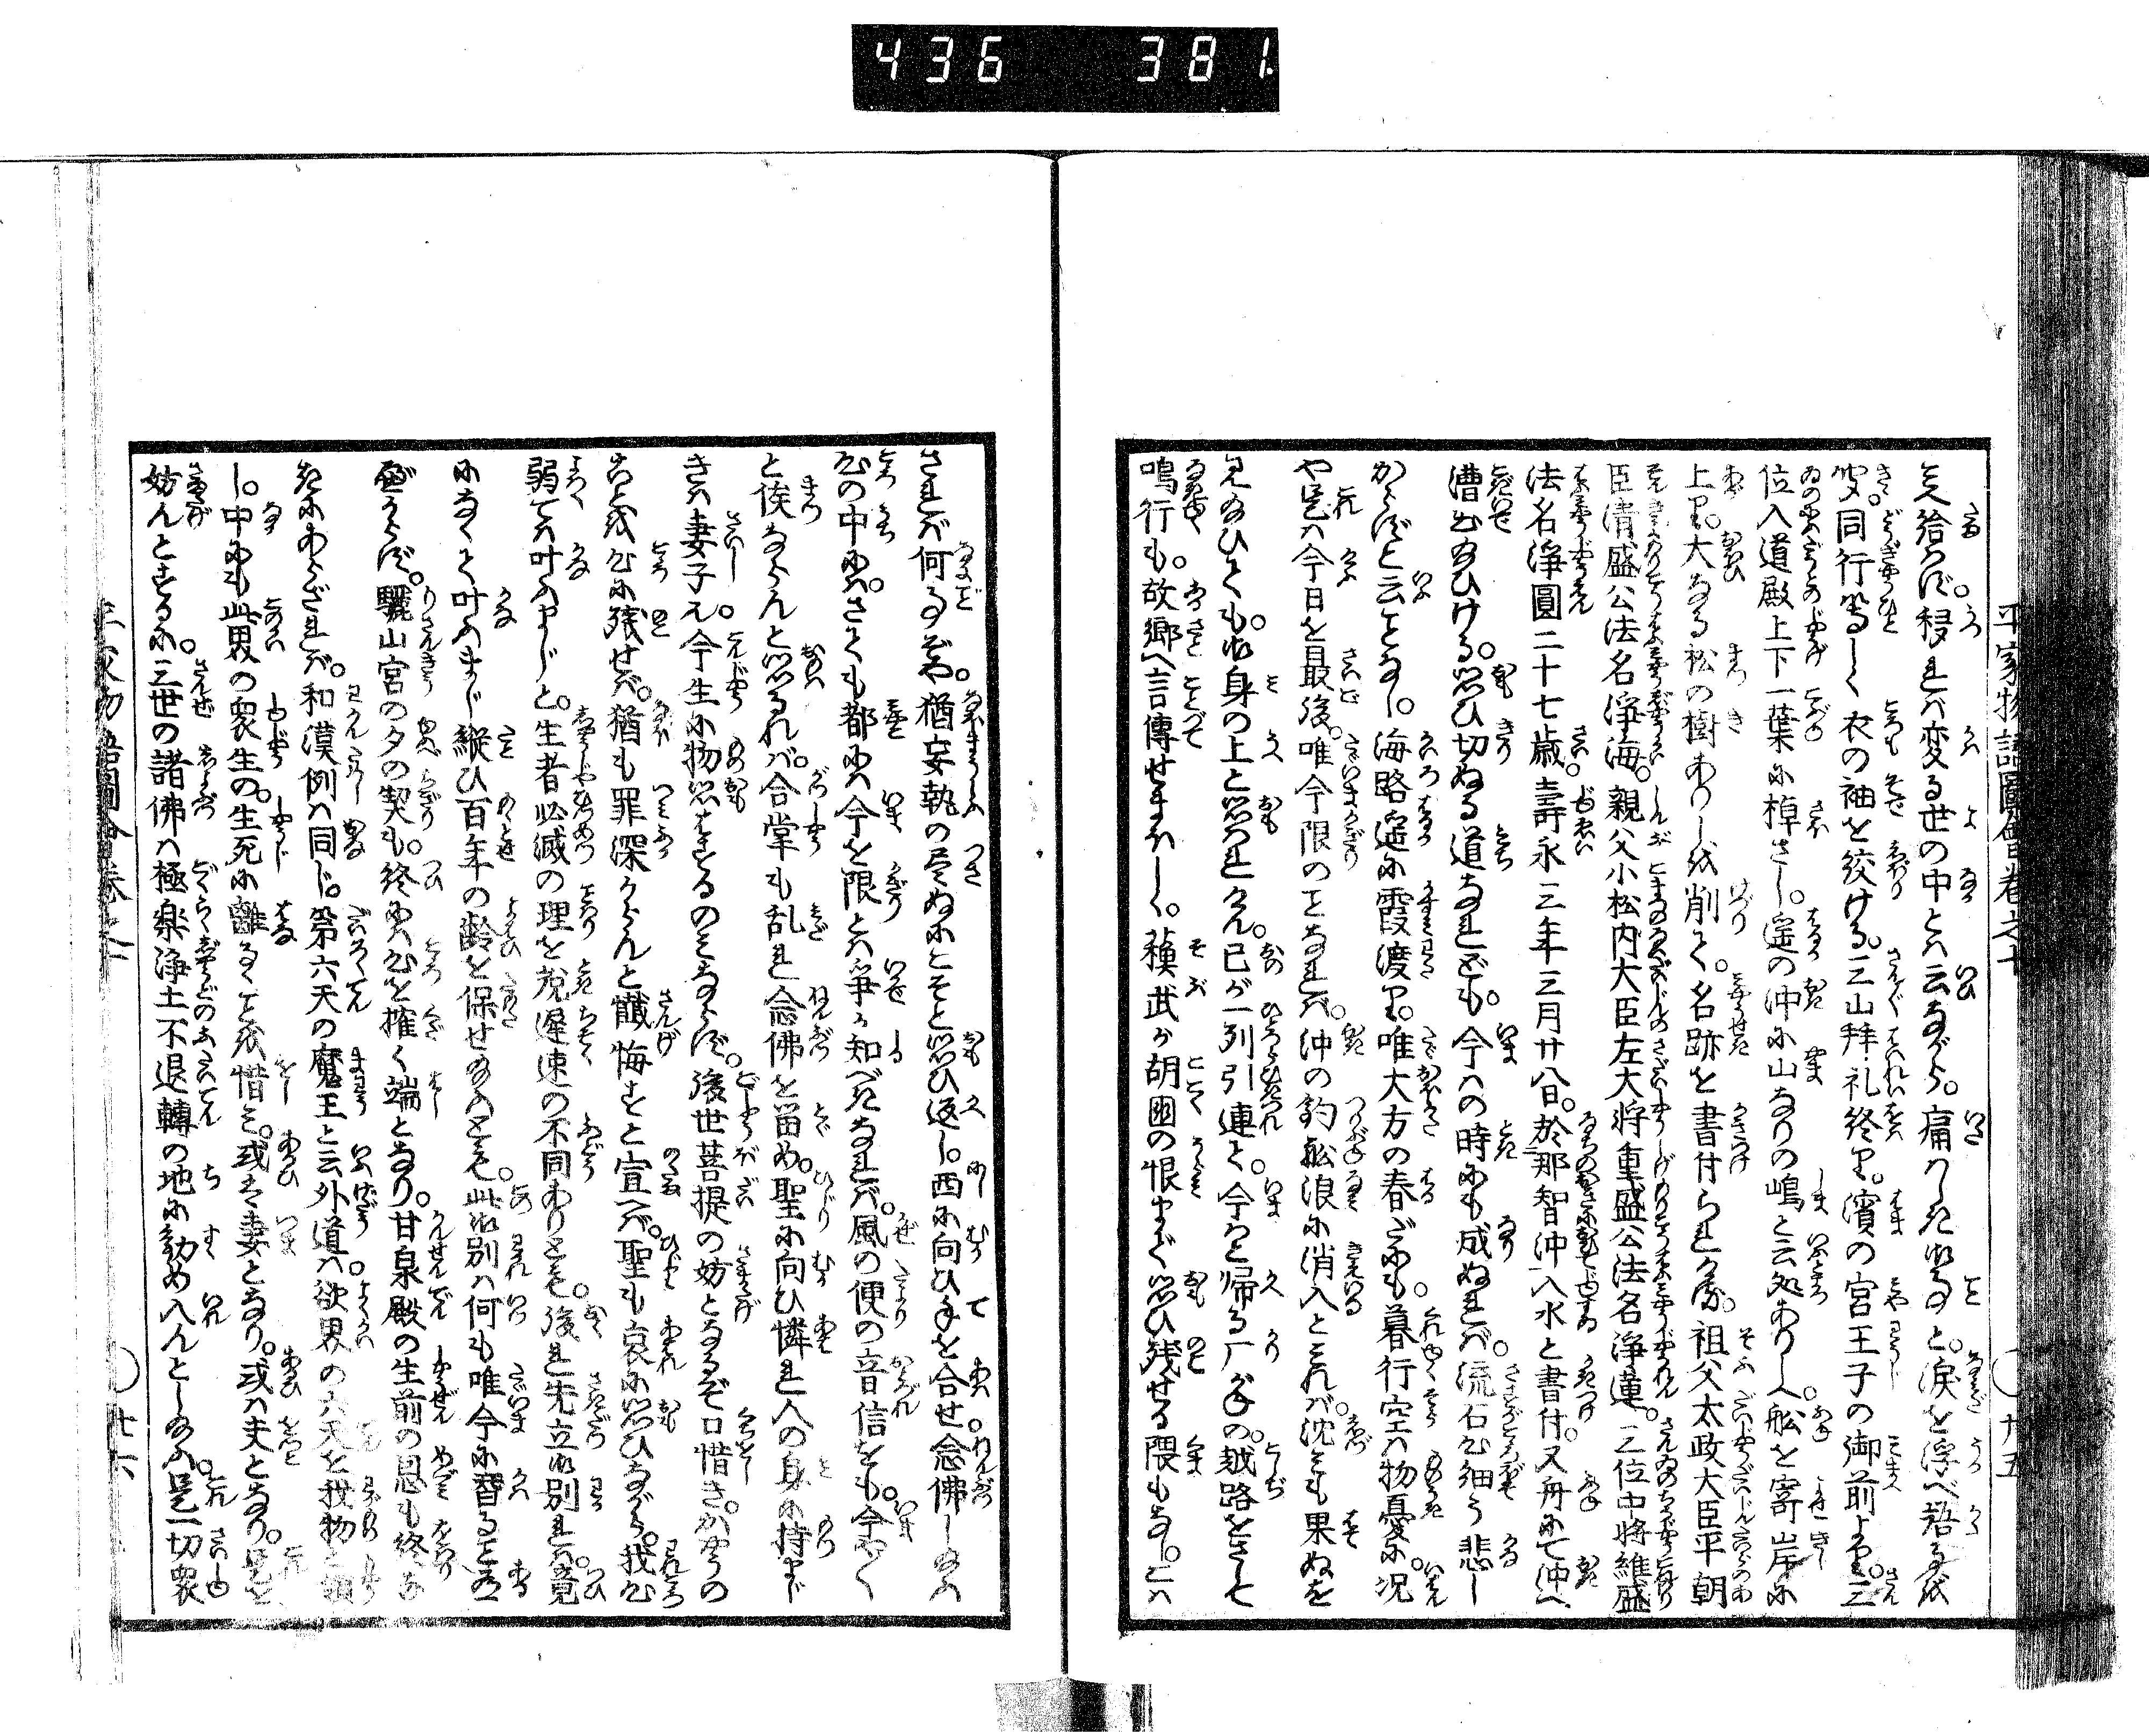 436 381
平家物語圖會巻之十 〇廿五
え給はず。移れば変る世の中とは云ながら。痛はしき御事と。涙を浮べ語るを
聞。同行等しく衣の袖を絞ける。三山拜礼終り。濱の宮王子の御前より。三
位入道殿上下一葉に棹さし。遥の沖に山なりの嶋と云処あり〳〵。舩を寄岸に
上り。大なる松の樹ありしを削て。名跡を書付られける。祖父太政大臣平朝
臣清盛公法名淨海。親父小松内大臣左大将重盛公法名淨蓮。三位中将維盛
法名淨圓二十七歳。壽永三年三月廿八日。於那智沖入水と書付。又舟にて沖へ
漕出給ひける。思ひ切ぬる道なれども。今はの時にも成ぬれば。流石心細う悲し
からずと云ことなし。海路遥に霞渡り。唯大方の春だにも。暮行空は物憂に。况
や是は今日を最後。唯今限のことなれば。沖の釣舩浪に消入とすれば。沈みも果ぬを
見給ひても。御身の上と思はれけん。已が一列引連て。今はと帰る厂がねの。越路をさして
鳴行も。故郷へ言傳せまほしく。蘓武が胡國の恨まで思ひ残せる隈もなし。こは
されば何事ぞや。猶妄執の尽ぬにこそと思ひ返し。西に向ひ手を合せ念佛し給ふ
心の中にも。さても都には今を限とは爭か知べきなれば。風の便の音信をも。今や〳〵
と俟ならんと思るれば。合掌も乱れ念佛を留め。聖に向ひ憐れ人の身に持まじ
きは妻子也。今生に物思はするのみならず。後世菩提の妨となるぞ口惜き。かやうの
ことを心に残せば。猶も罪深からんと懺悔すと宣へば。聖も哀に思ひながら。我心
弱ては叶ふまじと。生者必滅の理を説遅速の不同ありとも。後れ先立御別れは。竟
になくて叶ふまじ縦ひ百年の齢を保せ給ふとも。此御別は何も唯今に替ることある
べからず。驪山宮の夕の契も。終には心を摧く端となり。甘泉殿の生前の恩も終な
きにあらざれば。和漢例は同じ。第六天の魔王と云外道は欲界の六天を我物と領
し。中にも此界の衆生の。生死に離るゝことを惜み。或は妻となり。或は夫となり。是を
妨んとするに。三世の諸佛は極楽浄土不退轉の地に勧め入んとし給ふ。是一切衆
平家物語圖會巻之十 〇廿六